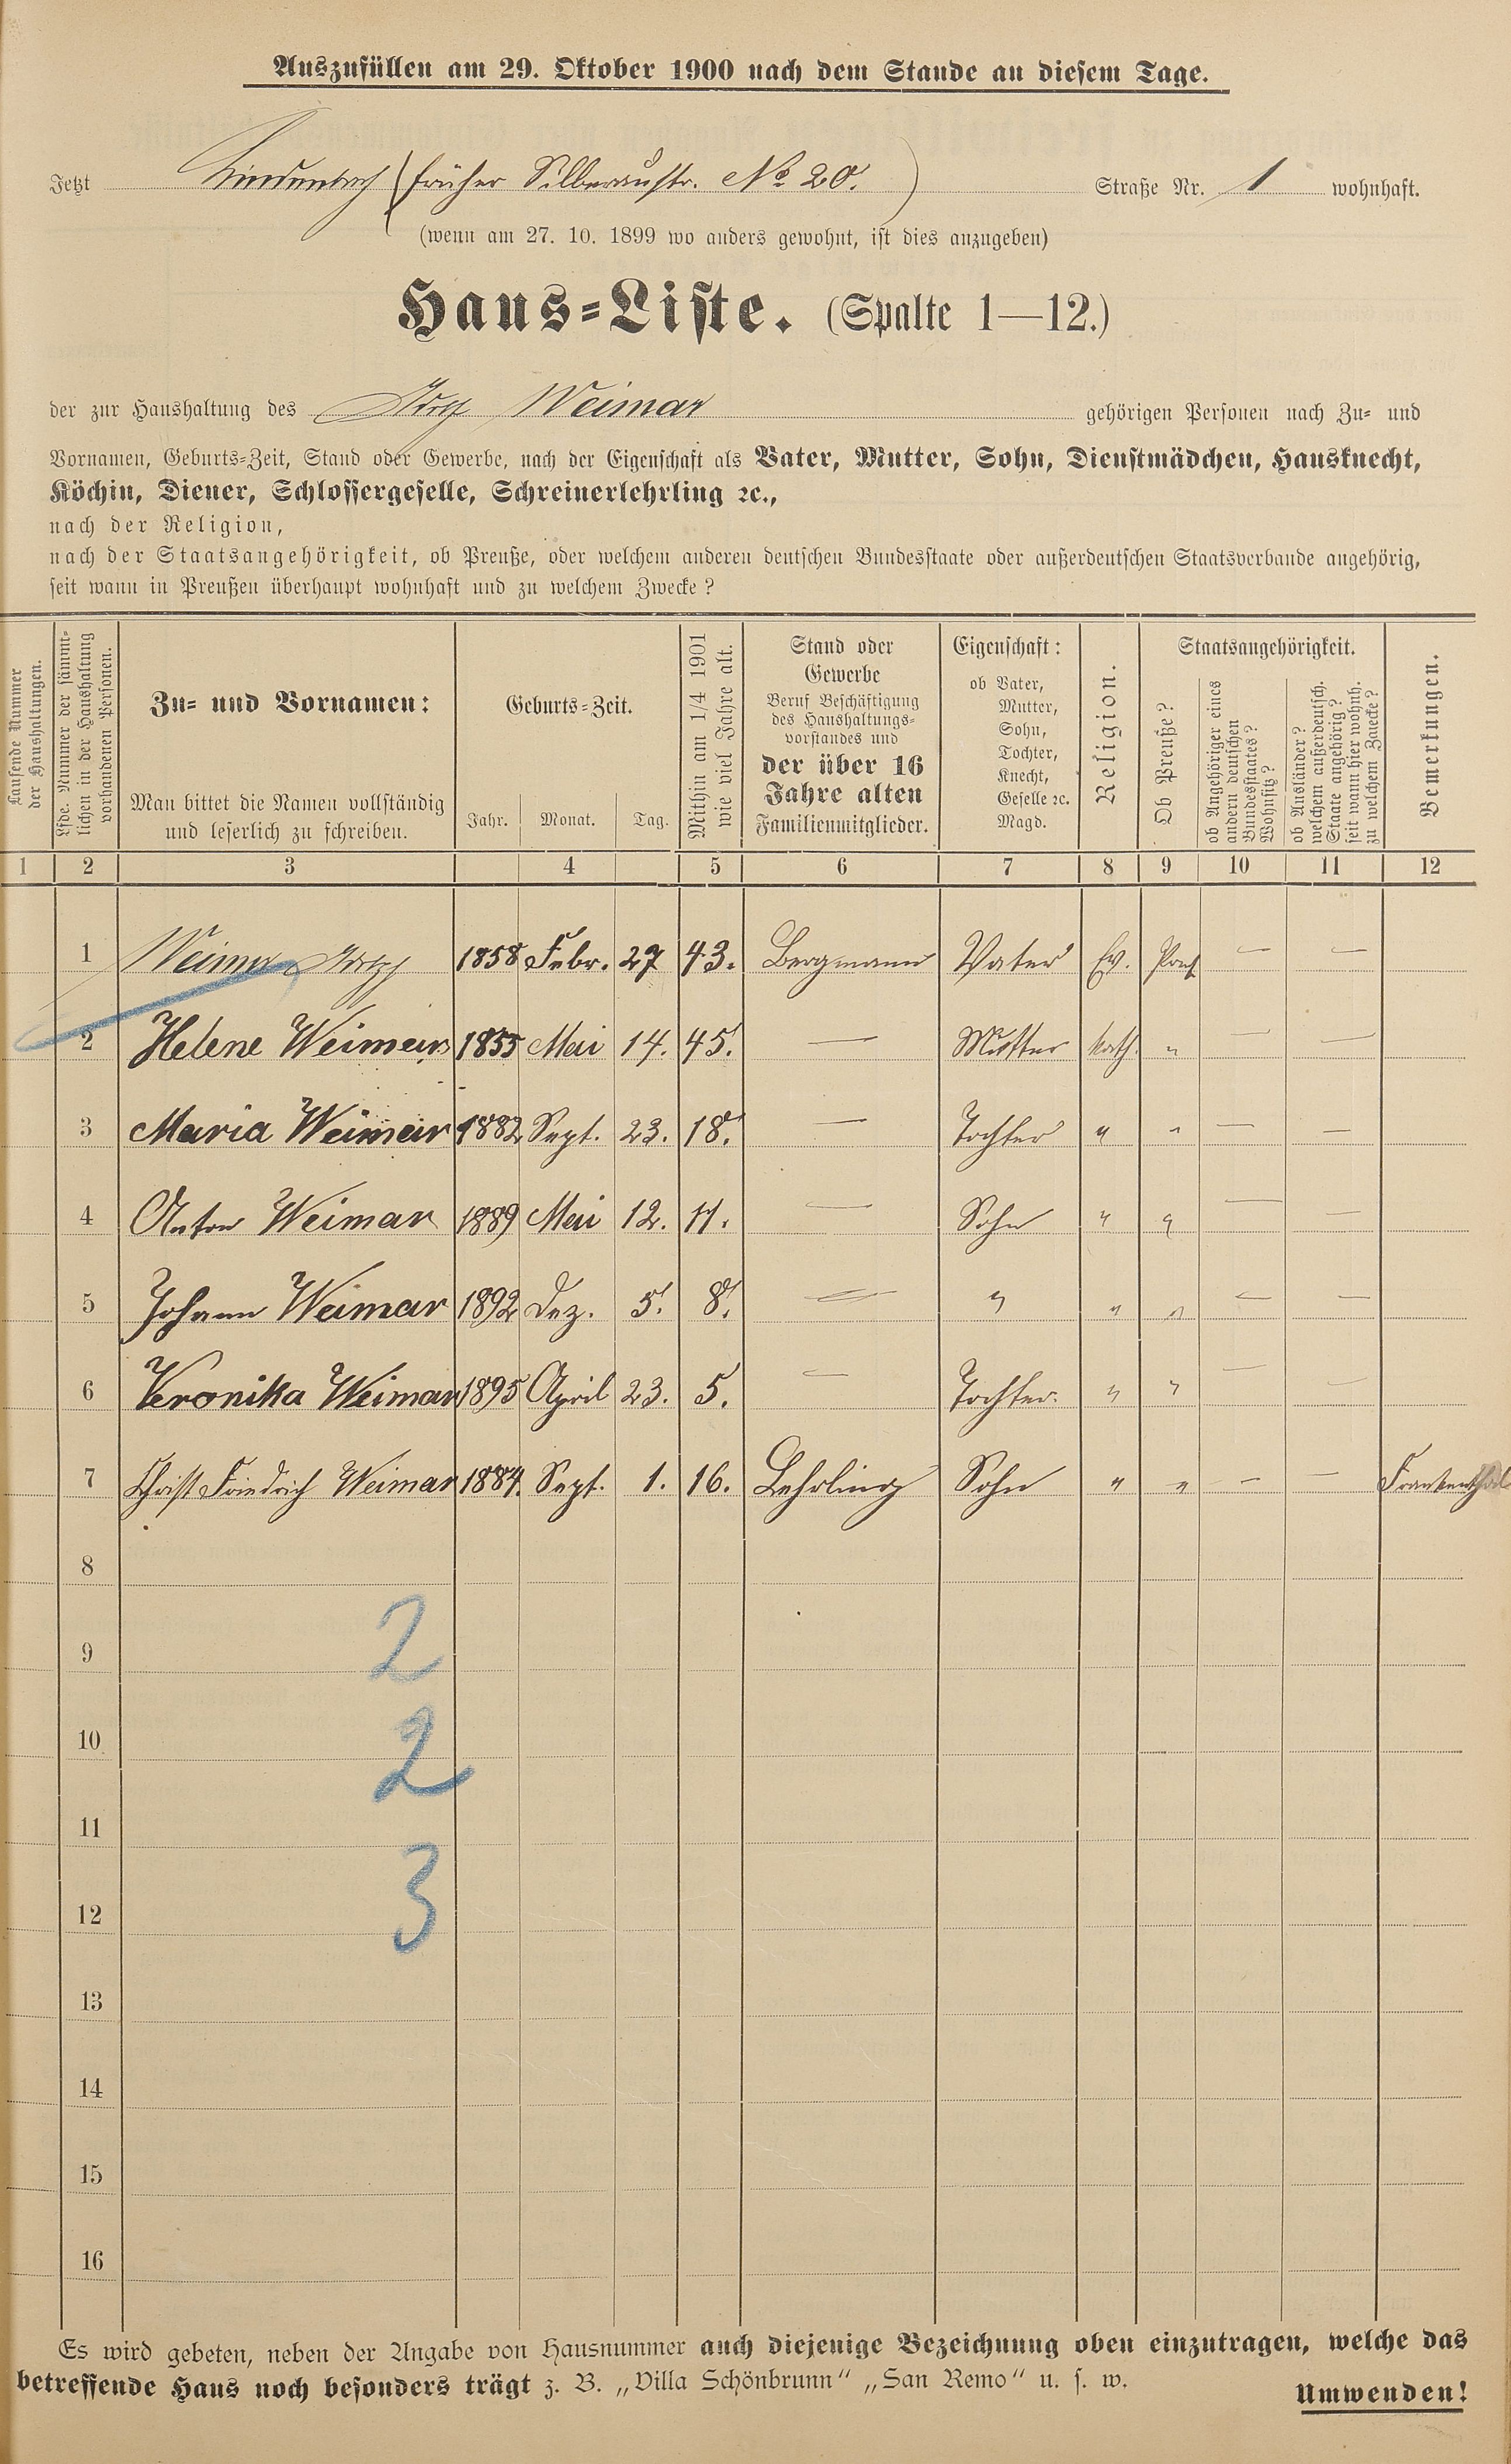 Auszufüllen am 29. Oktober 1900 nach dem Stande an diesem Tage.
Jetzt Lindenbach (früher Silberaustr. No 20.) Straße Nr. 1 wohnhaft.
(wenn am 27. 10. 1899 wo anders gewohnt, ist dies anzugeben)
Haus-Liste. (Spalte 1—12.)
der zur Haushaltung des Weimar gehörigen Personen nach Zu- und
Vornamen, Geburts-Zeit, Stand oder Gewerbe, nach der Eigenschaft als Vater, Mutter, Sohn, Dienstmädchen, Hausknecht,
Köchin, Diener, Schlossergeselle, Schreinerlehrling ꝛc.,
nach der Religion,
nach der Staatsangehörigkeit, ob Preuße, oder welchem anderen deutschen Bundesstaate oder außerdeutschen Staatsverbande angehörig,
seit wann in Preußen überhaupt wohnhaft und zu welchem Zwecke?
Laufende Nummer
der Haushaltungen.
Lfde. Nummer der sämmt-
lichen in der Haushaltung
vorhandenen Personen.
Zu- und Vornamen:
Man bittet die Namen vollständig
und leserlich zu schreiben.
Geburts-Zeit.
Jahr. Monat. Tag.
Mithin am 1/4 1901
wie viel Jahre alt.
Stand oder
Gewerbe
Beruf Beschäftigung
des Haushaltungs-
vorstandes und
der über 16
Jahre alten
Familienmitglieder.
Eigenschaft:
ob Vater,
Mutter,
Sohn,
Tochter,
Knecht,
Geselle ꝛc.
Magd.
Religion.
Staatsangehörigkeit.
Ob Preuße?
ob Angehöriger eines
andern deutschen
Bundesstaates?
Wohnsitz?
ob Ausländer?
welchem außerdeutsch.
Staate angehörig?
seit wann hier wohnh.
zu welchem Zwecke?
Bemerkungen.
1 2 3 4 5 6 7 8 9 10 11 12
1 Weimar 1858 Febr. 27 43. Bergmann Vater Ev. — —
2 Helene Weimar 1855 Mai 14. 45. — Mutter Kath. " — —
3 Maria Weimar 1882 Sept. 23. 18. — Tochter " " — —
4 Anton Weimar 1889 Mai 12. 11. — Sohn " " — —
5 Johann Weimar 1892 Dez. 5. 8. — " " " — —
6 Veronika Weimar 1895 April 23. 5. — Tochter. " " — —
7 Christ Friedrich Weimar 1884. Sept. 1. 16. Lehrling Sohn " " — — Frankenthal
8
9 2
10 2
11
12 3
13
14
15
16
Es wird gebeten, neben der Angabe von Hausnummer auch diejenige Bezeichnung oben einzutragen, welche das
betreffende Haus noch besonders trägt z. B. „Villa Schönbrunn“ „San Remo“ u. s. w.
Umwenden!